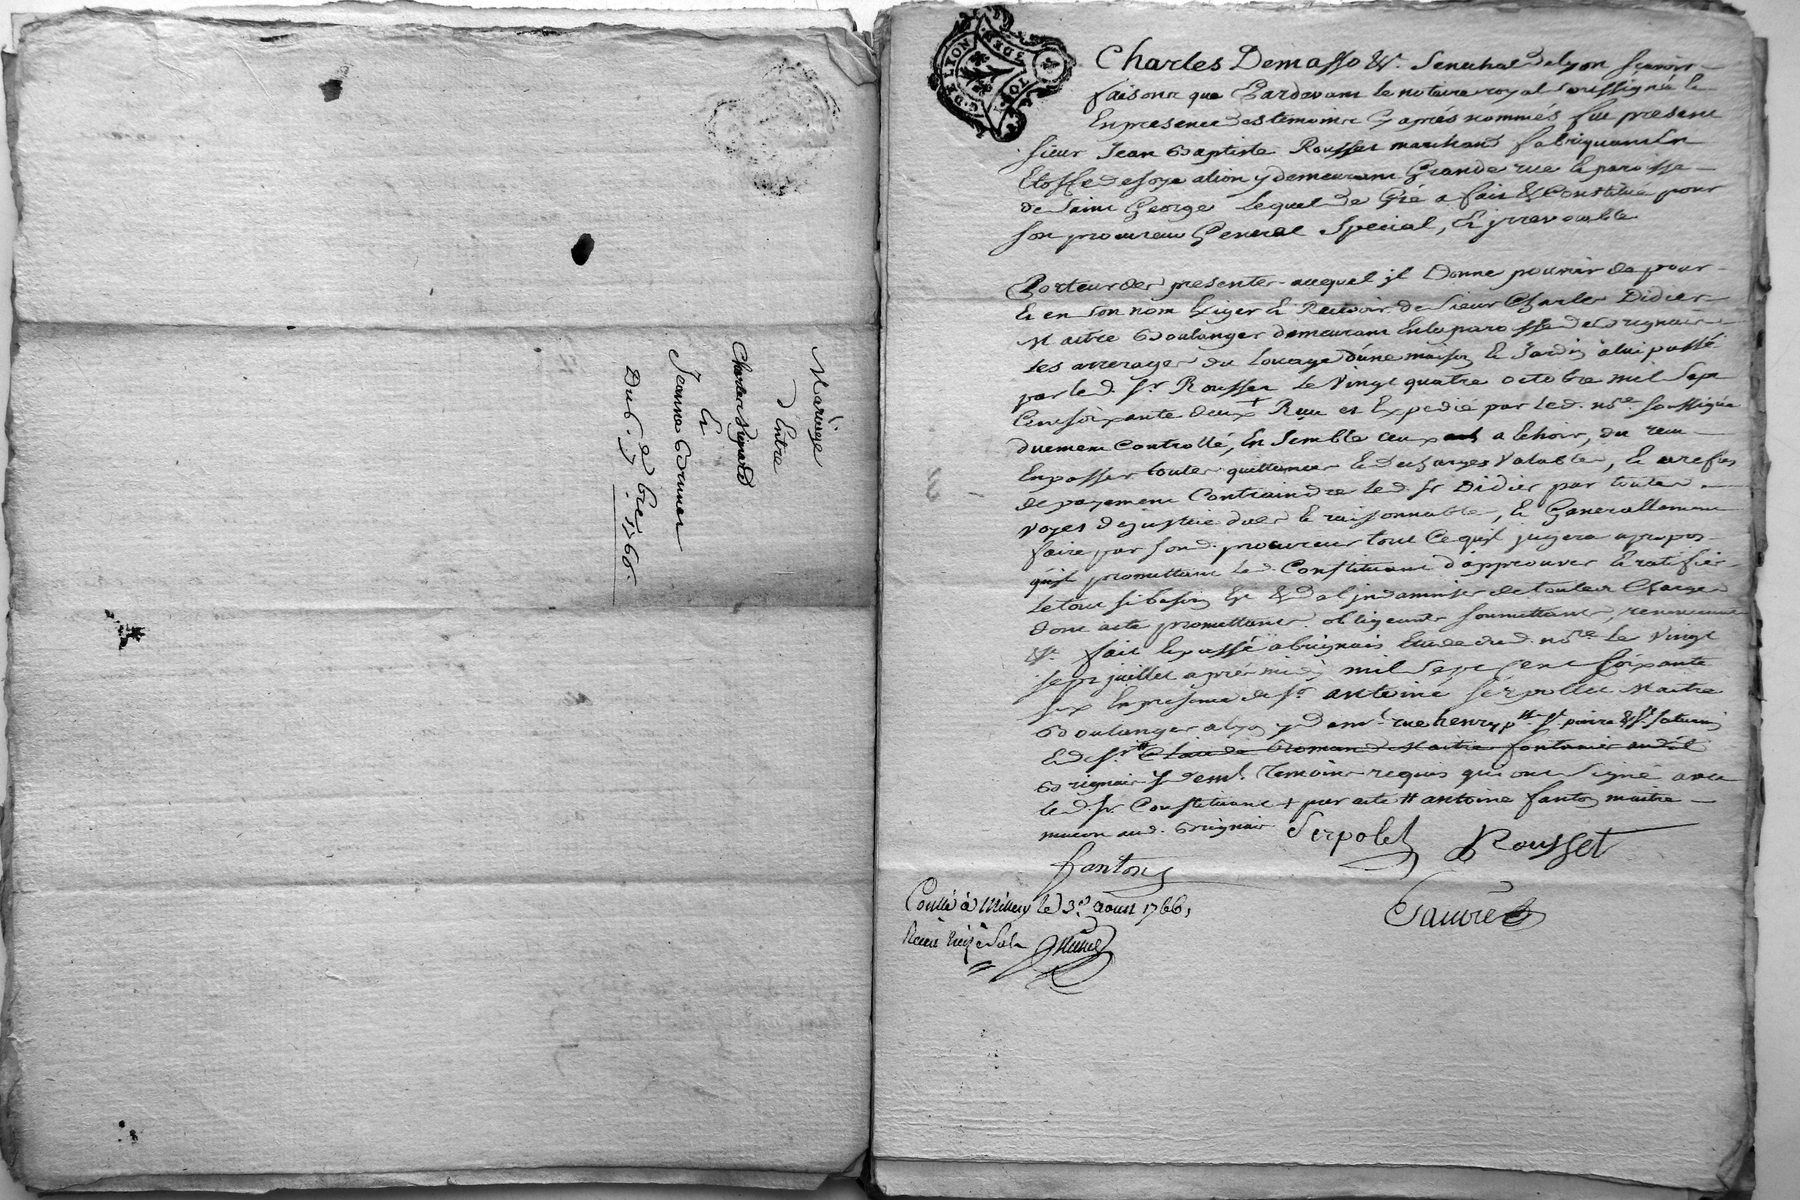 Mariage
d'Entre
Charles Vignard
Et
Jeanne Coruner
Du 6. 7bre 1766.
G. DE LYON
Charles Demasso &c. Senechal de lyon scavoir
faisons que Pardevant le notaire royal soussigné &
En presence des temoins cy aprés nommés fut present
sieur Jean Baptiste Rousset marchand fabriquant En
Etoffe de soye a lion y demeurant Grande rue & paroisse
de saint George lequel de Gré a fait & Constitué pour
son procureur General Special, Et jrrevocable
Porteur des presentes auquel jl Donne pouvoir de pour
Et en son nom Exiger Et Recevoir de sieur Charles Didier
Maitre Boulanger demeurant En la paroisse de Brignais
les arrerages du louage d'une maison & Jardin a lui passé
par led. Sr Rousset le vingt quatre octobre mil sept
Cent soixante deux + Recu et Expedié par led. nre. soussigné
duement Controllé, En semble ceux a Echoir, du recu
En passer toutes quittances & decharges valables, Et a refus
de payement Contraindre led. Sr Didier par toutes
voyes de justice dues & raisonnables, Et Generallement
faire par sond. procureur tout ce qu'il jugera apropos
promettant led. Constituant d'approuver & ratifier
le tout si besoin Est & de l'jndamniser de toutes Charges
dont acte promettant obligeant soumettant, renonceant
&c. fait & passé a brignais Etude dud. nre le vingt
sept juillet aprés midy mil sept cent soixante
six En presence de sr antoine serpollet Maitre
Boulanger a lyon y demt. rue henry psse st pierre & st saturnin
& de sr. # Claude Maitre fontanier aud.
Brignais y demt. Temoins requis qui ont signé avec
led. Sr Constituant + par acte # antoine fanton maitre
macon aud. Brignais Serpolet Rousset
fanton
Conllé à Millery le 3e. aout 1766,
Sauvé
Recu treize sols